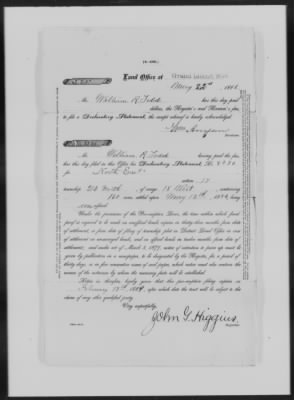 Land Office at Grand Island, Neb
May 22nd, 188
Mr. William R. Todd has this day paid
dollars, the Register's and Receiver's fees,
to file a Declaratory Statement, the receipt whereof is hereby acknowledged.
Receiver.
Mr. William R. Todd having paid the fees,
has this day filed in this Office his Declaratory Statement, No.
for North East
section
township North, of range 18 West, containing
160 acres, settled upon May 12th, 188 being
offered.
Under the provisions of the Pre-emption Laws, the time within which final
proof is required to be made on unoffered lands expires in thirty-three months from date
of settlement, or from date of filing of township plat in District Land Office in case
of settlement on unsurveyed lands, and on offered lands in twelve months from date of
settlement; and under act of March 3, 1879, notice of intention to prove up must be
given by publication in a newspaper, to be designated by the Register, for a period of
thirty days, or in five consecutive issues of said paper, which notice must also contain the
names of the witnesses by whom the necessary facts will be established.
Notice is therefore hereby given that the pre-emption filing expires on
February 12th 188 after which date the tract will be subject to the
claim of any other qualified party.
Very respectfully,
John G. Higgins,
Register.